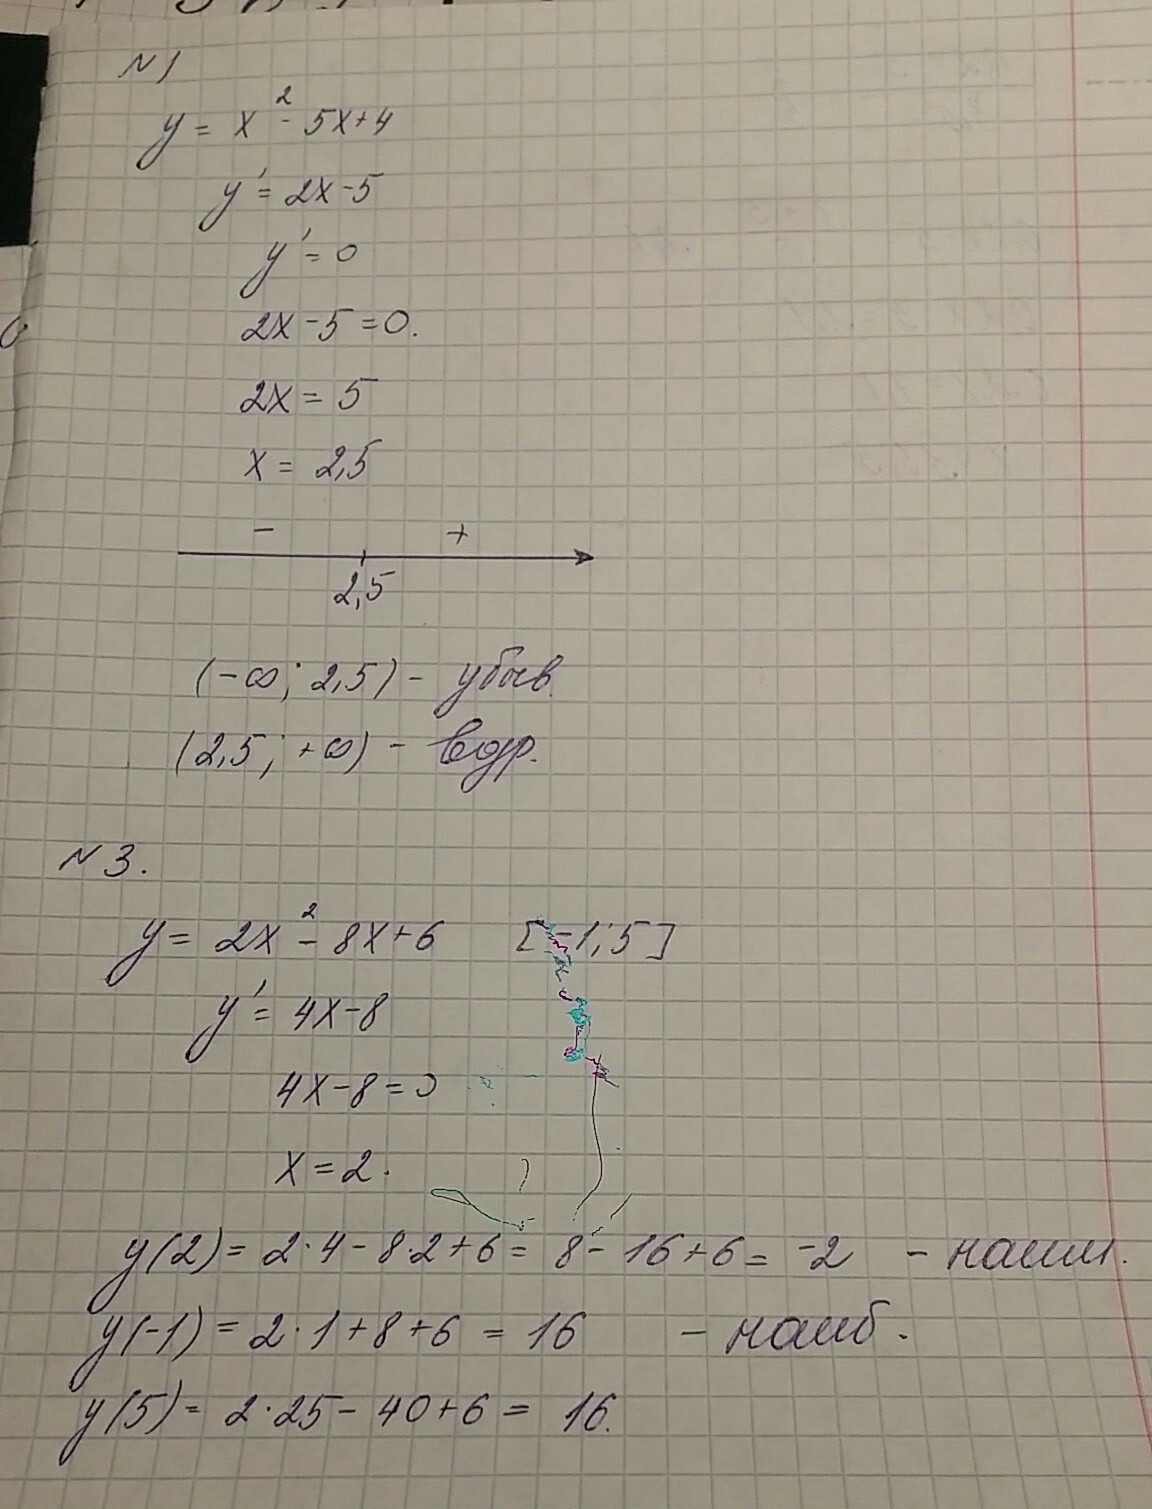 N1
y = x² - 5x+4
y' = 2x-5
y' = 0
2x-5=0.
2x = 5
x = 2,5
- +
2,5
(-∞; 2,5) - убыв.
(2,5; +∞) - возр.
N3.
y = 2x² - 8x+6 [-1;5]
y' = 4x-8
4x-8=0
x=2.
y(2) = 2·4-8·2+6 = 8-16+6 = -2 - наим.
y(-1) = 2·1+8+6 = 16 - наиб.
y(5) = 2·25-40+6 = 16.